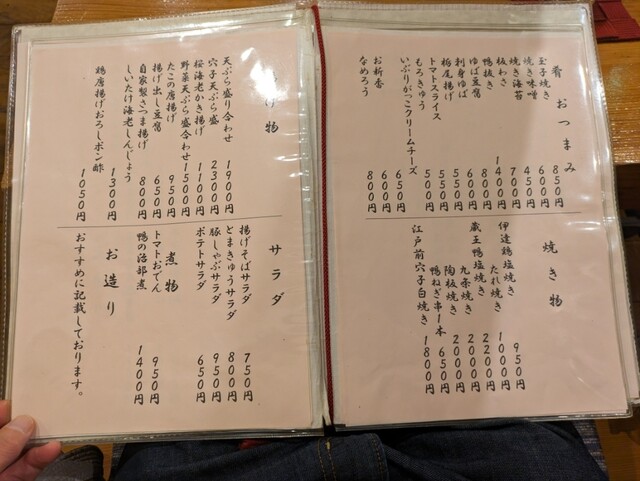 肴 おつまみ
玉子焼き 850円
焼き味噌 600円
焼き海苔 450円
板わさ 700円
鴨抜き 1400円
ゆば豆腐 800円
刺身ゆば 600円
栃尾揚げ 550円
トマトスライス 550円
もろきゅう 500円
いぶりがっこクリームチーズ 650円
お新香 600円
なめろう 800円
焼き物
伊達鶏塩焼き 950円
たれ焼き 1000円
蔵王鴨塩焼き 2200円
九条焼き 2200円
陶板焼き 2000円
鴨ねぎ串1本 650円
江戸前穴子白焼き 1800円
揚げ物
天ぷら盛り合わせ 1900円
穴子天ぷら盛 2300円
桜海老かき揚げ 1100円
野菜天ぷら盛り合わせ 1500円
たこの唐揚げ 950円
揚げ出し豆腐 650円
自家製さつま揚げ 800円
しいたけ海老しんじょう 1300円
鶏唐揚げおろしポン酢 1050円
サラダ
揚げそばサラダ 750円
とまきゅうサラダ 800円
豚しゃぶサラダ 950円
ポテトサラダ 650円
煮物
トマトおでん 950円
鴨の治部煮 1400円
お造り
おすすめに記載しております。